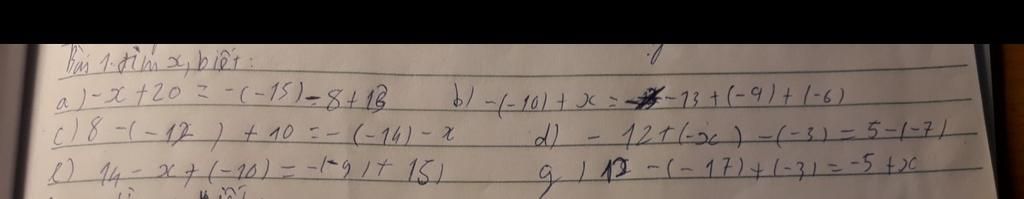 Bài 1. tìm x, biết:
a) -x + 20 = -(-15) - 8 + 13 b) -(-10) + x = -13 + (-9) + (-6)
c) 8 - (-12) + 10 = -(-14) - x d) - 12 + (-x) - (-3) = 5 - (-7)
e) 14 - x + (-10) = -(-9) + 15) g) 12 - (-17) + (-3) = -5 + x